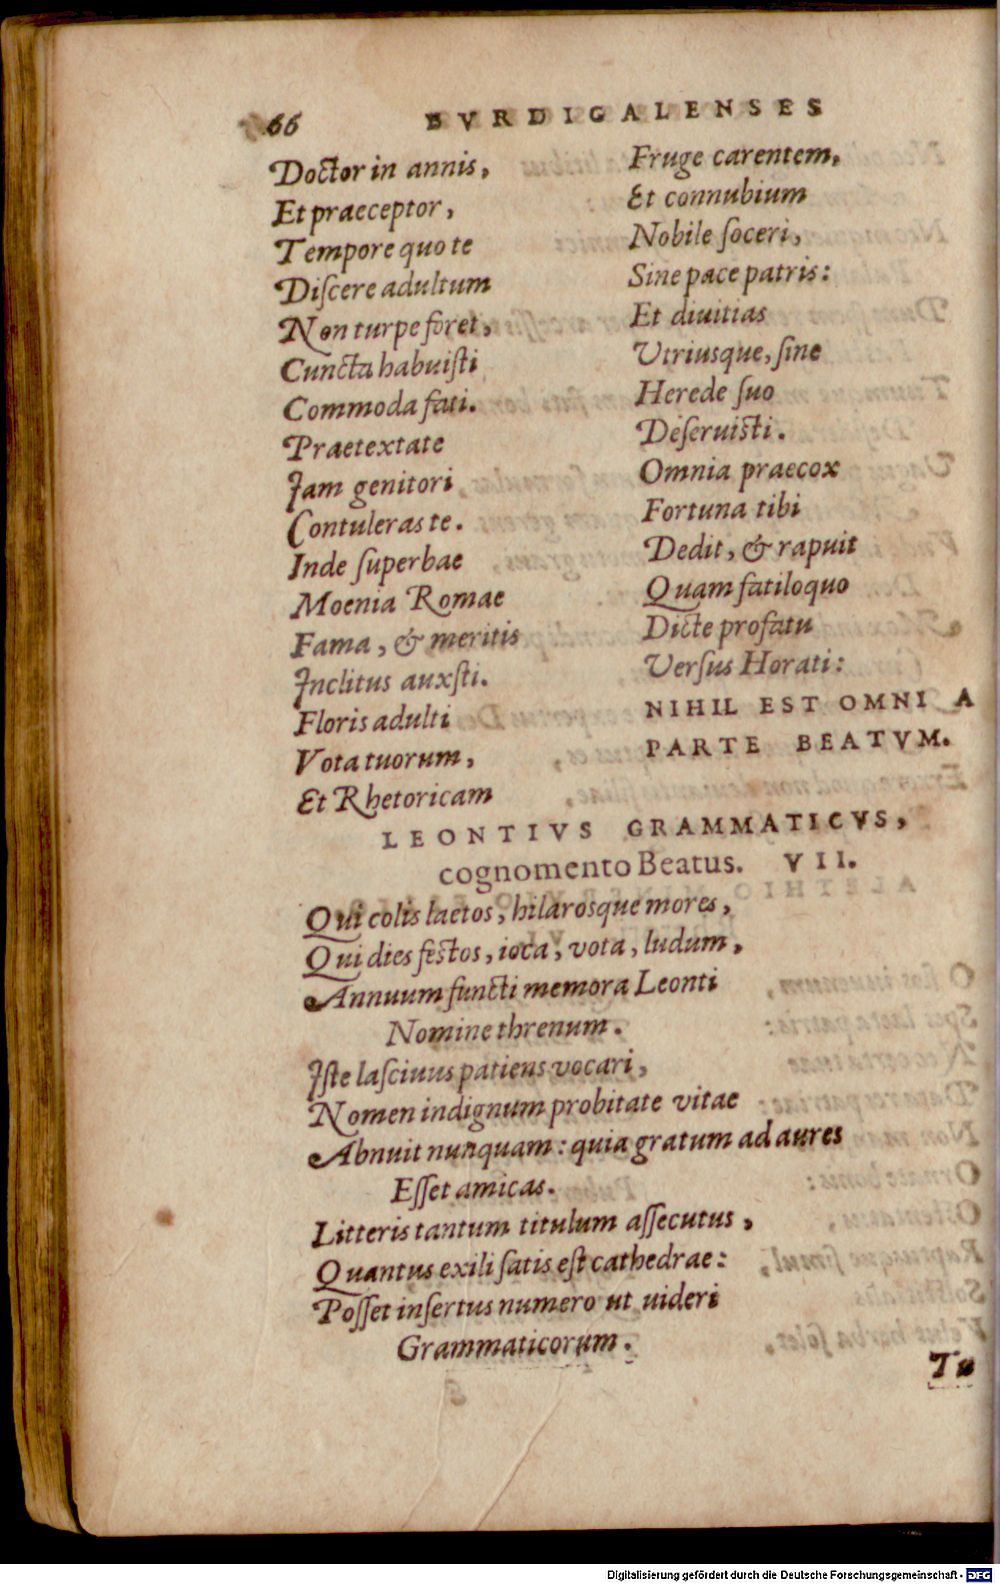 66 BVRDIGALENSES
Doctor in annis,
Et praeceptor,
Tempore quo te
Diſcere adultum
Non turpe foret,
Cuncta habuiſti
Commoda fati.
Praetextate
Jam genitori
Contuleras te.
Inde ſuperbae
Moenia Romae
Fama, & meritis
Jnclitus auxſti.
Floris adulti
Vota tuorum,
Et Rhetoricam
Fruge carentem,
Et connubium
Nobile ſoceri,
Sine pace patris:
Et diuitias
Utriusque, ſine
Herede ſuo
Deſeruisti.
Omnia praecox
Fortuna tibi
Dedit, & rapuit
Quam fatiloquo
Dicte profatu
Verſus Horati:
NIHIL EST OMNI A
PARTE BEATVM.
LEONTIVS GRAMMATICVS,
cognomento Beatus. VII.
Qui colis laetos, hilarosque mores,
Qui dies festos, ioca, vota, ludum,
Annuum functi memora Leonti
Nomine threnum.
Jſte laſciuus patiens vocari,
Nomen indignum probitate vitae
Abnuit nunquam: quia gratum ad aures
Eſſet amicas.
Litteris tantum titulum aſſecutus,
Quantus exili ſatis eſt cathedrae:
Poſſet inſertus numero ut uideri
Grammaticorum.
Tu
Digitalisierung gefördert durch die Deutsche Forschungsgemeinschaft - DFG